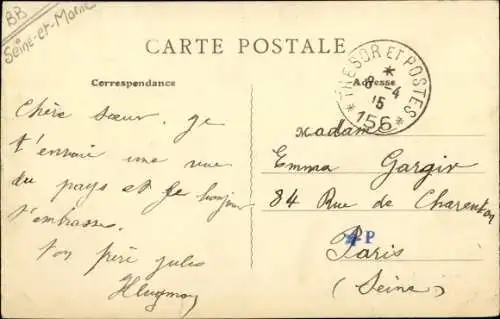 BB
Seine-et-Marne
CARTE POSTALE
Correspondance
Adresse
TRESOR ET POSTES
8-4
15
* 156 *
Chère sœur. je
t'envoie une vue
du pays et le bonjour
t'embrasse.
ton frère jules
Madame
Emma Gargir
84 Rue de Charenton
P
Paris
(Seine)